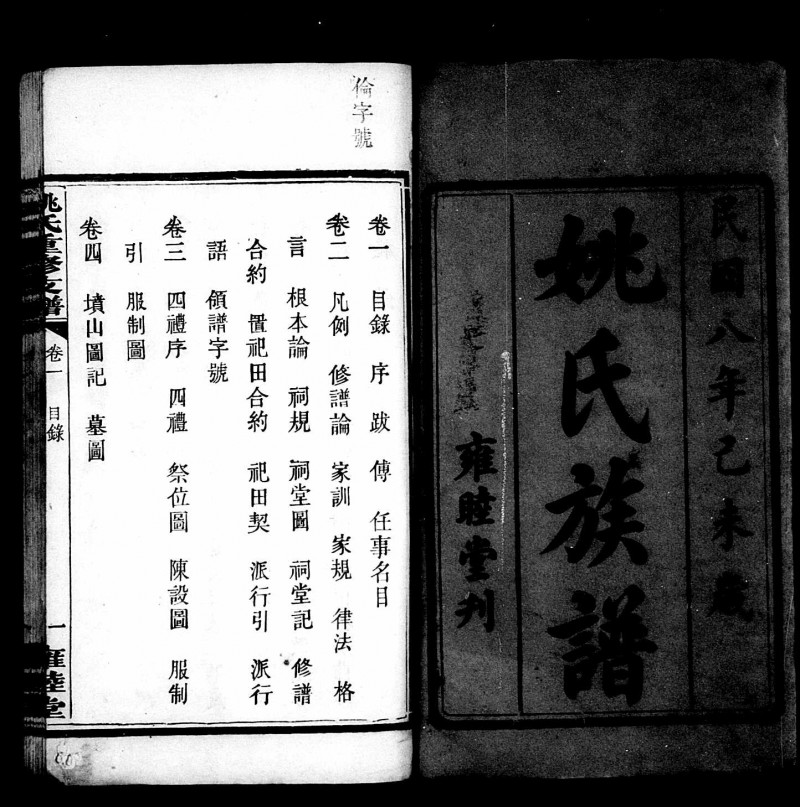 民國八年己未歲
姚氏族譜
雍睦堂刋
倫字號
卷一 目錄 序 跋 傅 任事名目
卷二 凡例 修譜論 家訓 家規 律法 格
言 根本論 祠規 祠堂圖 祠堂記 修譜
合約 置祀田合約 祀田契 派行引 派行
語 領譜字號
卷三 四禮序 四禮 祭位圖 陳設圖 服制
引 服制圖
卷四 墳山圖記 墓圖
姚氏重修支譜 卷一 目錄 一 雍睦堂